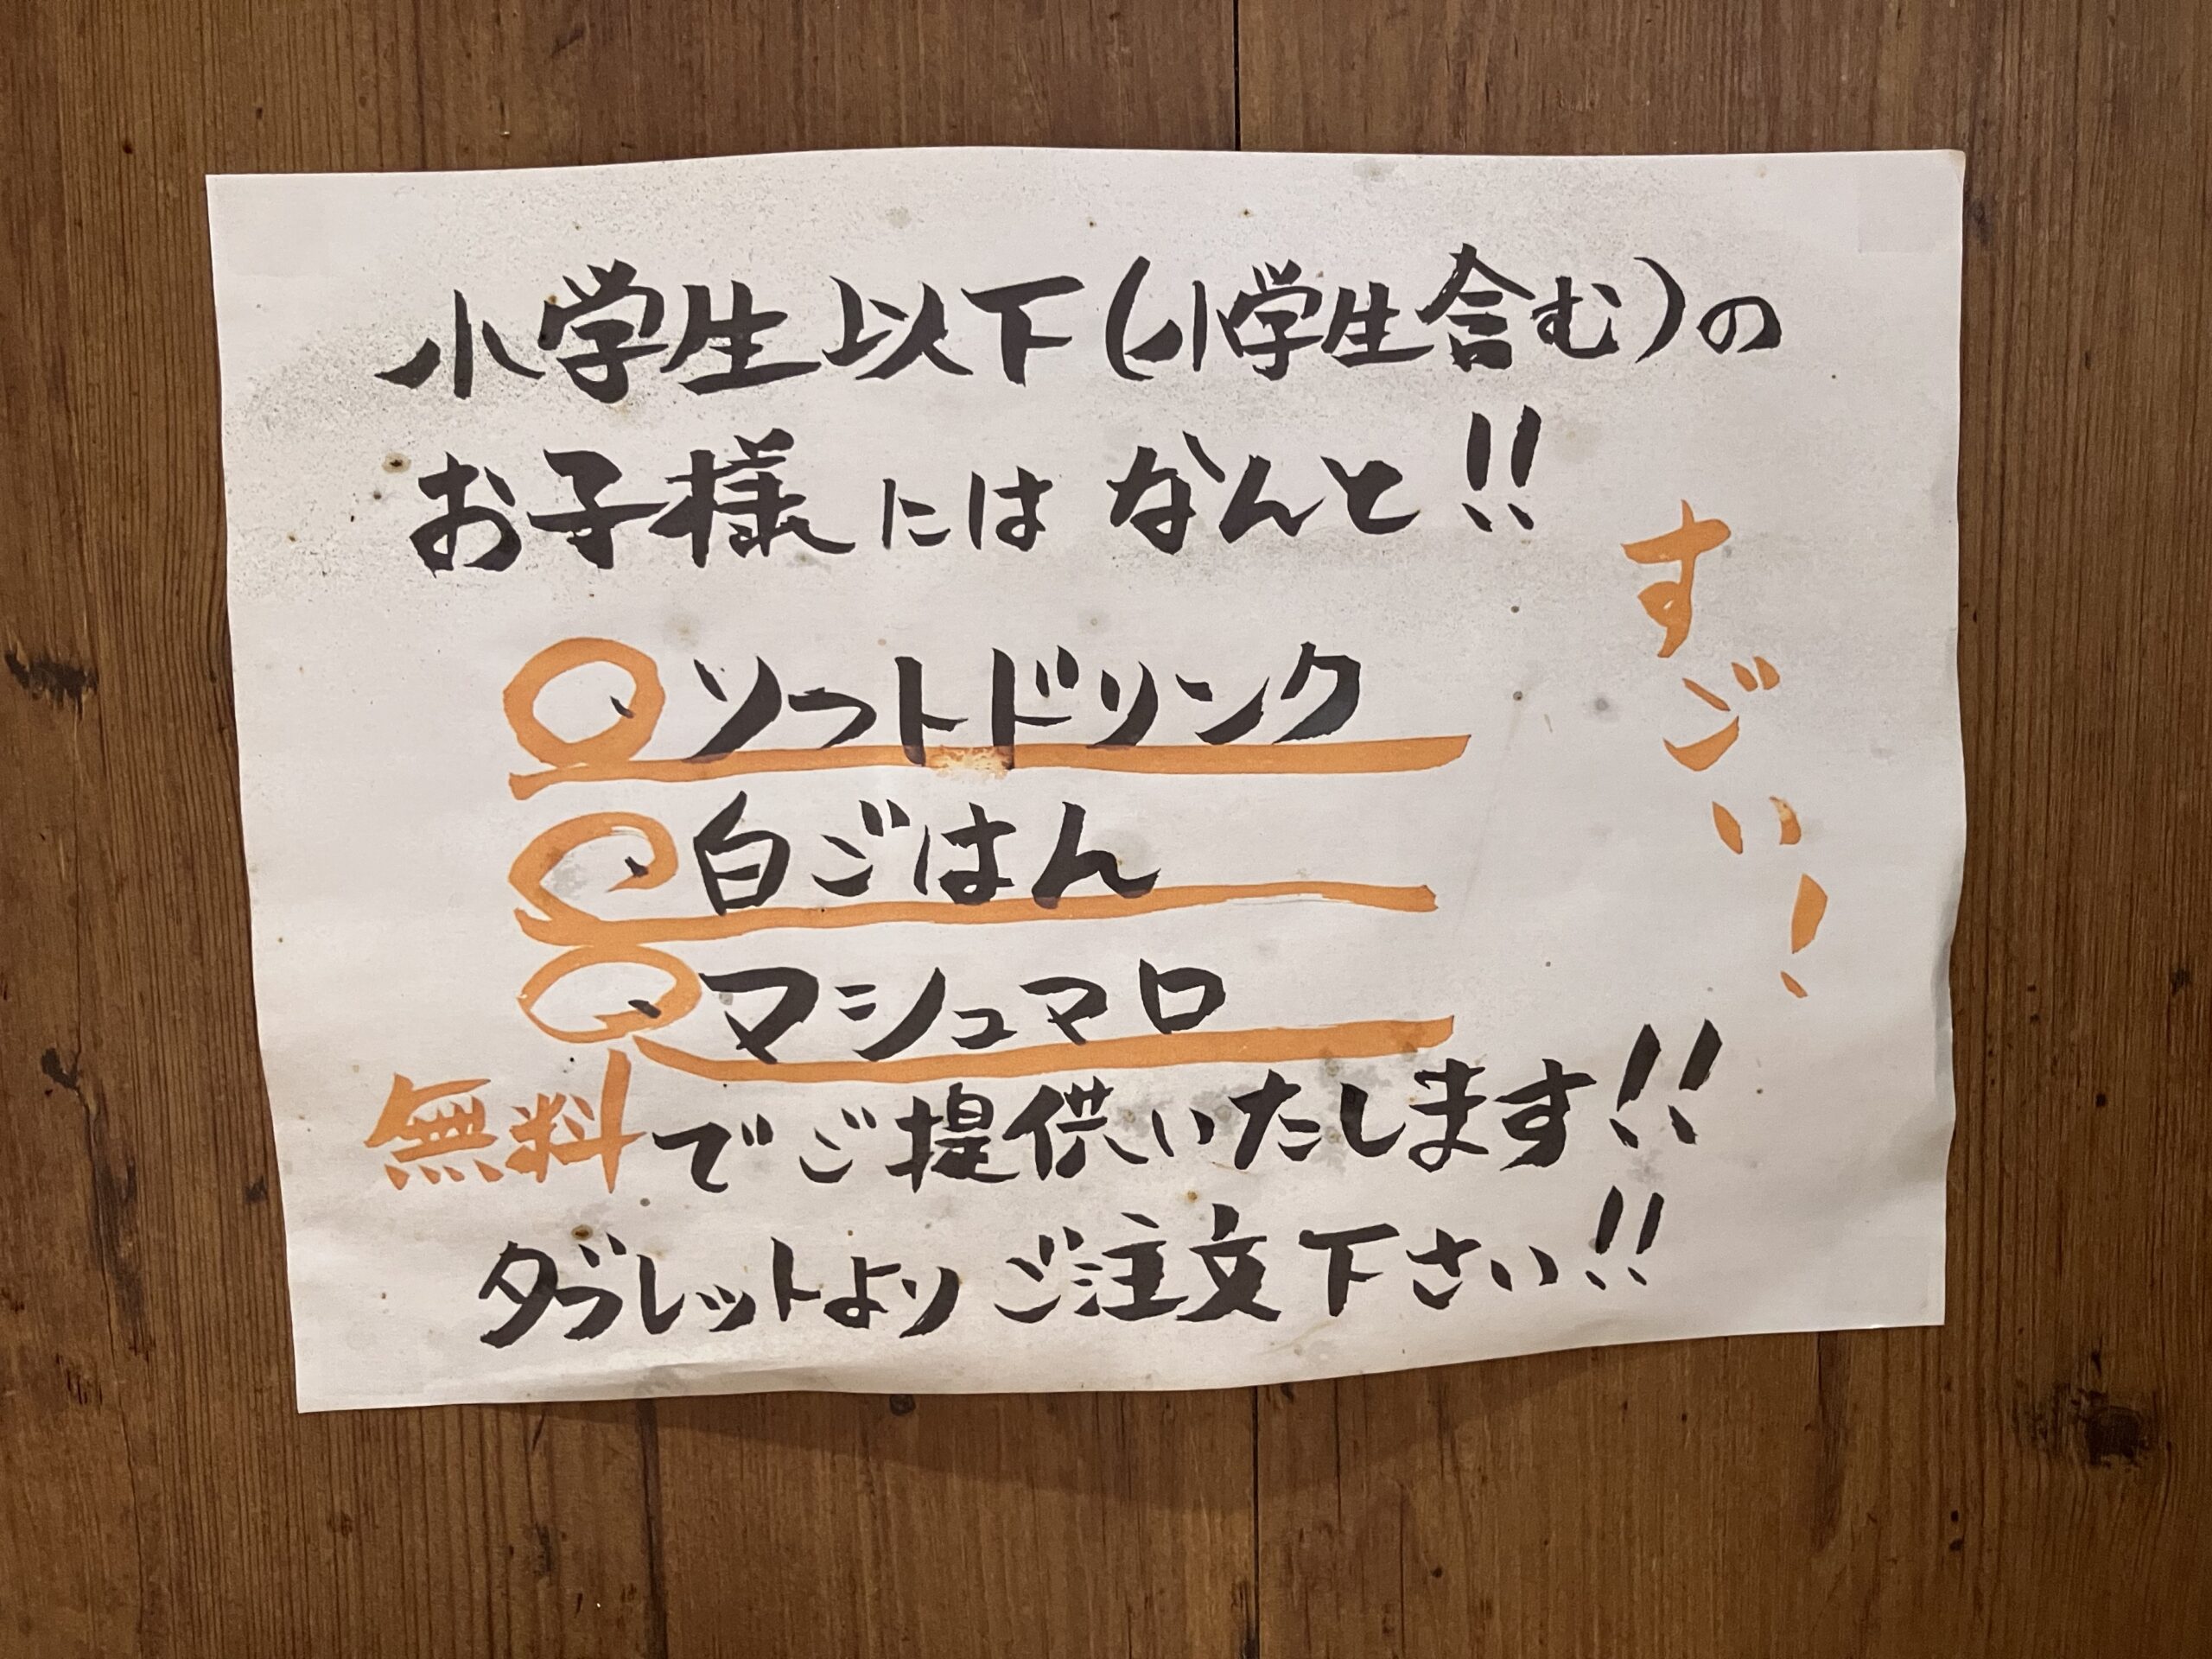 小学生以下(小学生含む)の
お子様には なんと!!
すごい!
〇、ソフトドリンク
〇、白ごはん
〇、マシュマロ
無料でご提供いたします!!
タブレットより ご注文下さい!!